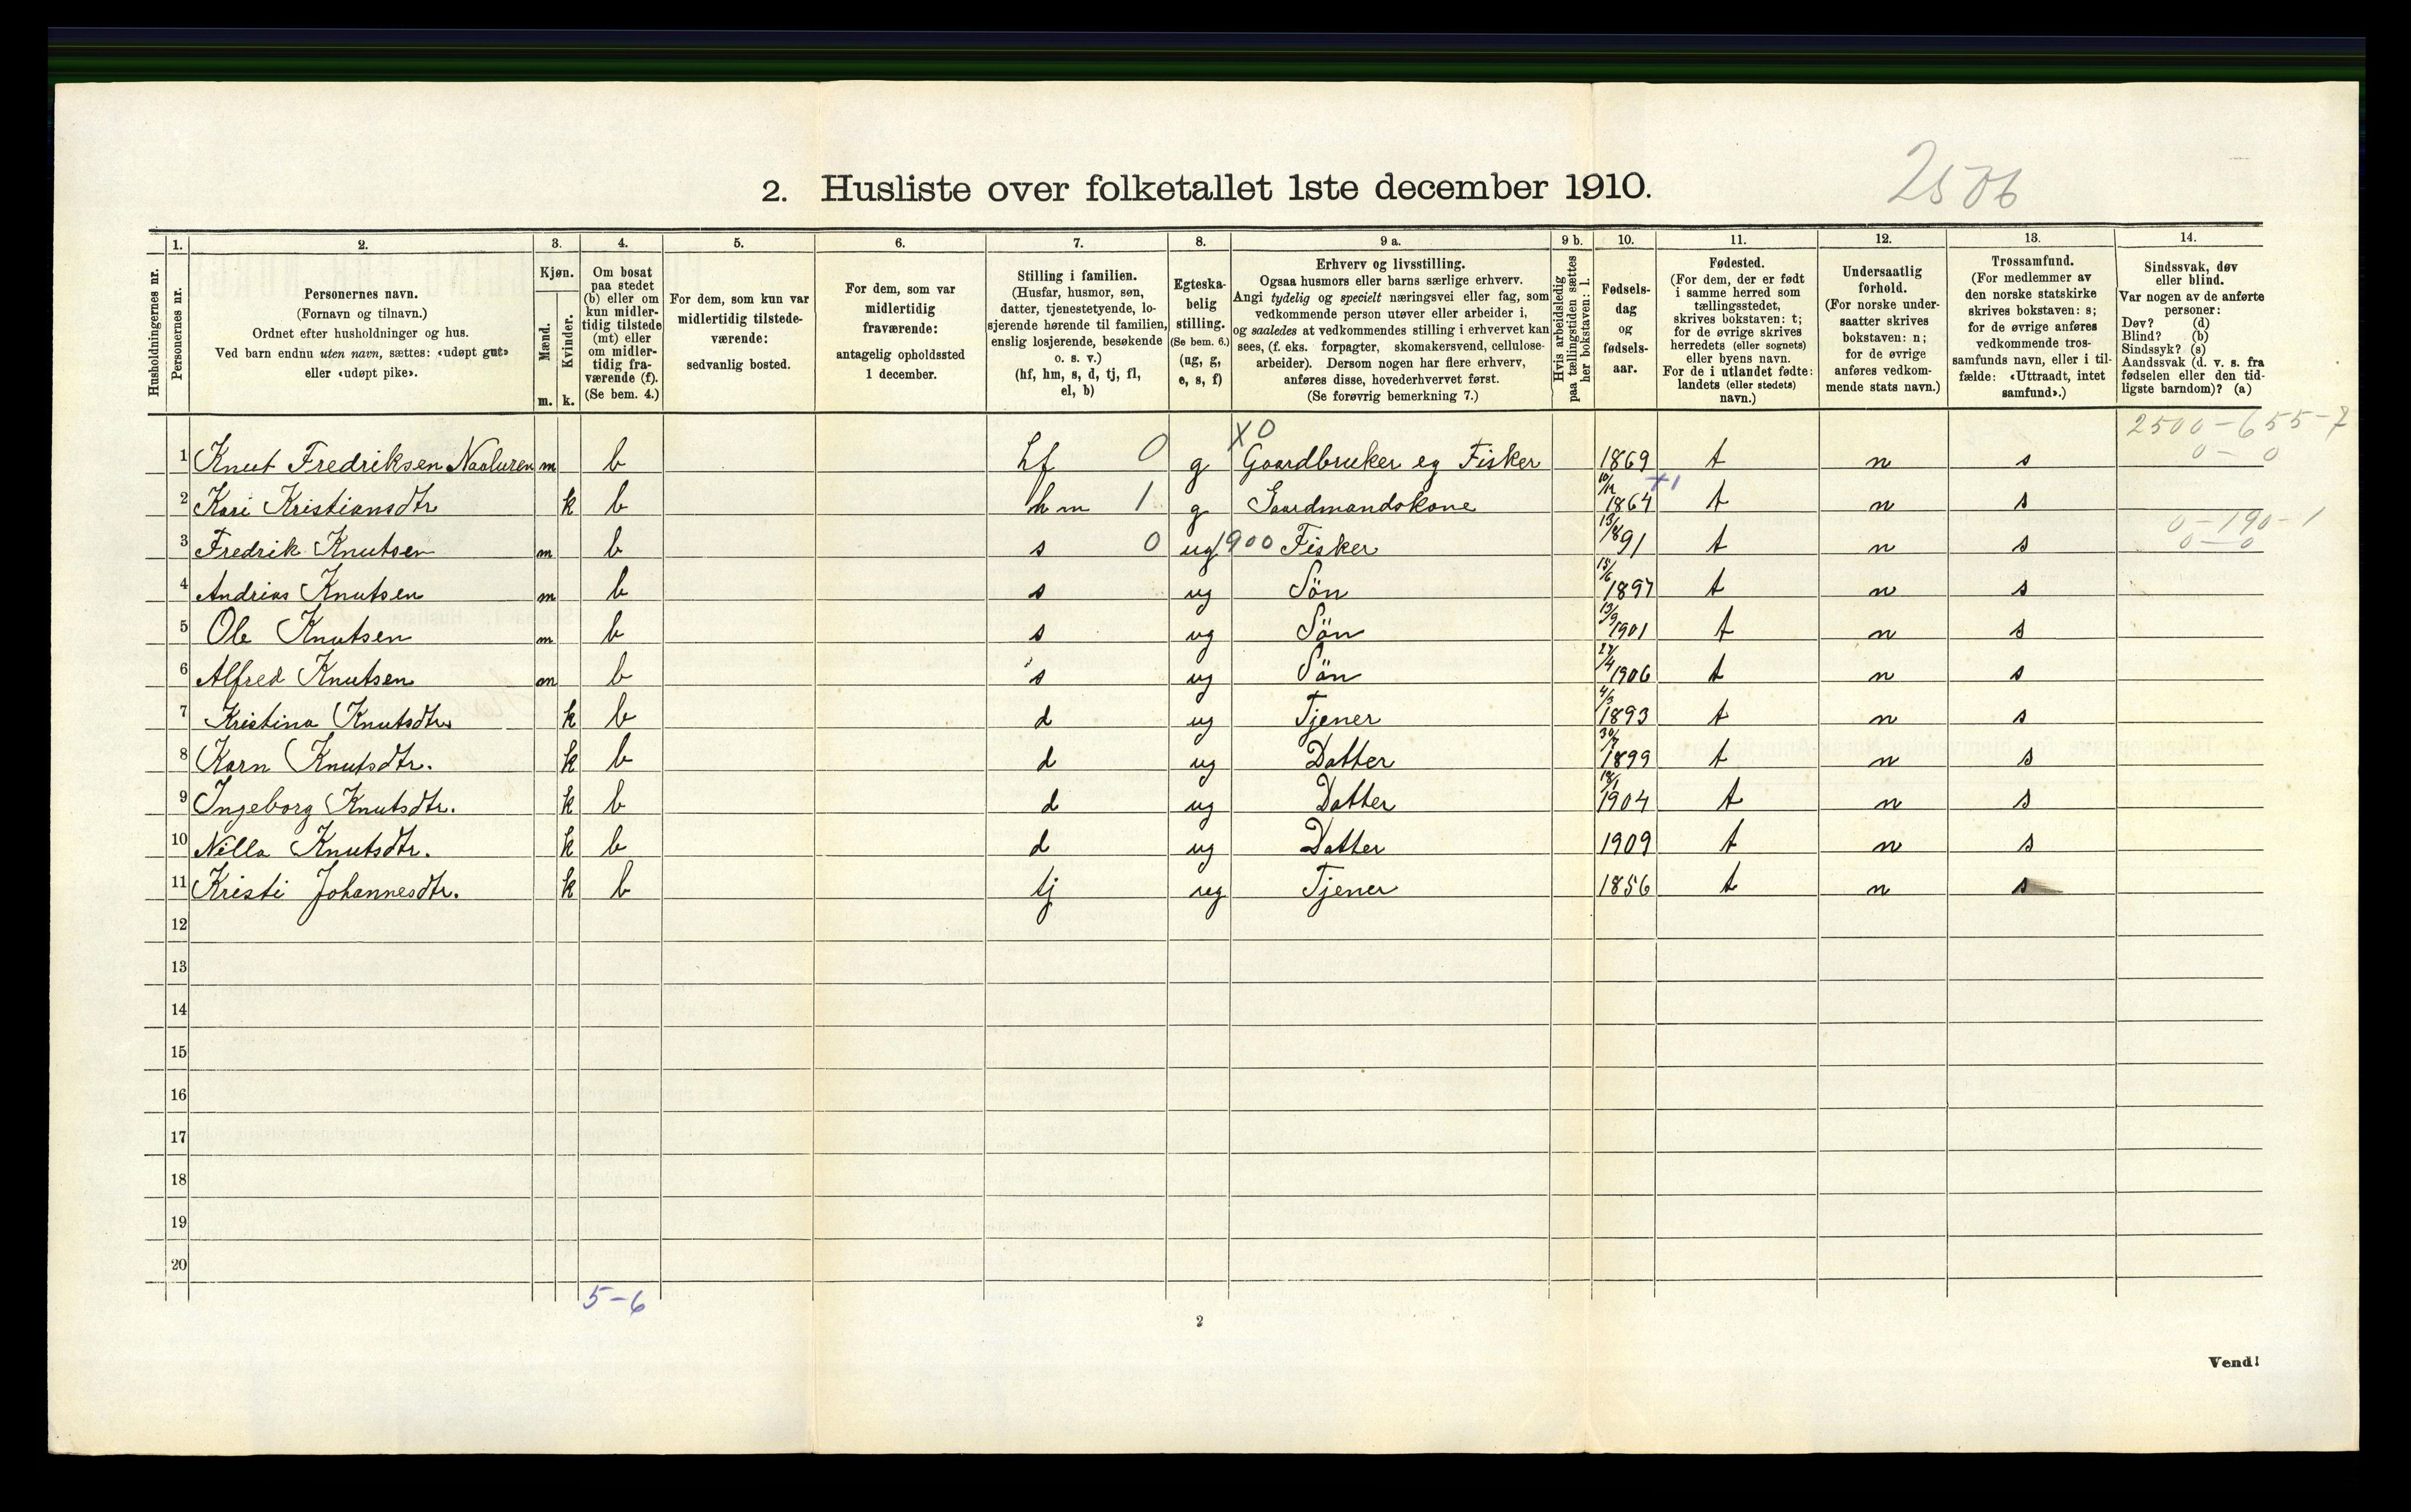 2. Husliste over folketallet 1ste december 1910.
2506
Husholdningernes nr.
1. Personernes nr.
2. Personernes navn.
(Fornavn og tilnavn.)
Ordnet efter husholdninger og hus.
Ved barn endnu uten navn, sættes: «udøpt gut»
eller «udøpt pike».
3. Kjøn.
Mænd. Kvinder.
m. k.
4. Om bosat
paa stedet
(b) eller om
kun midler-
tidig tilstede
(mt) eller
om midler-
tidig fra-
værende (f).
(Se bem. 4.)
5. For dem, som kun var
midlertidig tilstede-
værende:
sedvanlig bosted.
6. For dem, som var
midlertidig
fraværende:
antagelig opholdssted
1 december.
7. Stilling i familien.
(Husfar, husmor, søn,
datter, tjenestetyende, lo-
sjerende hørende til familien,
enslig losjerende, besøkende
o. s. v.)
(hf, hm, s, d, tj, fl,
el, b)
8. Egteska-
belig
stilling.
(Se bem. 6.)
(ug, g,
e, s, f)
9 a. Erhverv og livsstilling.
Ogsaa husmors eller barns særlige erhverv.
Angi tydelig og specielt næringsvei eller fag, som
vedkommende person utøver eller arbeider i,
og saaledes at vedkommendes stilling i erhvervet kan
sees, (f. eks. forpagter, skomakersvend, cellulose-
arbeider). Dersom nogen har flere erhverv,
anføres disse, hovederhvervet først.
(Se forøvrig bemerkning 7.)
9 b. Hvis arbeidsledig
paa tællingstiden sættes
her bokstaven: l.
10. Fødsels-
dag
og
fødsels-
aar.
11. Fødested.
(For dem, der er født
i samme herred som
tællingsstedet,
skrives bokstaven: t;
for de øvrige skrives
herredets (eller sognets)
eller byens navn.
For de i utlandet fødte:
landets (eller stedets)
navn.)
12. Undersaatlig
forhold.
(For norske under-
saatter skrives
bokstaven: n;
for de øvrige
anføres vedkom-
mende stats navn.)
13. Trossamfund.
(For medlemmer av
den norske statskirke
skrives bokstaven: s;
for de øvrige anføres
vedkommende tros-
samfunds navn, eller i til-
fælde: «Uttraadt, intet
samfund».)
14. Sindssvak, døv
eller blind.
Var nogen av de anførte
personer:
Døv? (d)
Blind? (b)
Sindssyk? (s)
Aandssvak (d. v. s. fra
fødselen eller den tid-
ligste barndom)? (a)
X0 2500-655-7
1 Knut Fredriksen Naaluren m b hf 0 g Gaardbruker og Fisker 1869 t n s 0-0
2 Kari Kristiansdtr k b hm 1 g Gaardmandskone 10/12 1864 +1 t n s
0-190-1
3 Fredrik Knutsen m b s 0 ug 1900 Fisker 13/8 1891 t n s 0-0
4 Andrias Knutsen m b s ug Sön 15/6 1897 t n s
5 Ole Knutsen m b s ug Sön 13/9 1901 t n s
6 Alfred Knutsen m b s ug Sön 27/4 1906 t n s
7 Kristina Knutsdtr k b d ug Tjener 4/3 1893 t n s
8 Karn Knutsdtr. k b d ug Datter 30/7 1899 t n s
9 Ingeborg Knutsdtr. k b d ug Datter 18/1 1904 t n s
10 Nilla Knutsdtr. k b d ug Datter 1909 t n s
11 Kristi Johannesdtr. k b tj ug Tjener 1856 t n s
12
13
14
15
16
17
18
19
20
5-6
2
Vend!